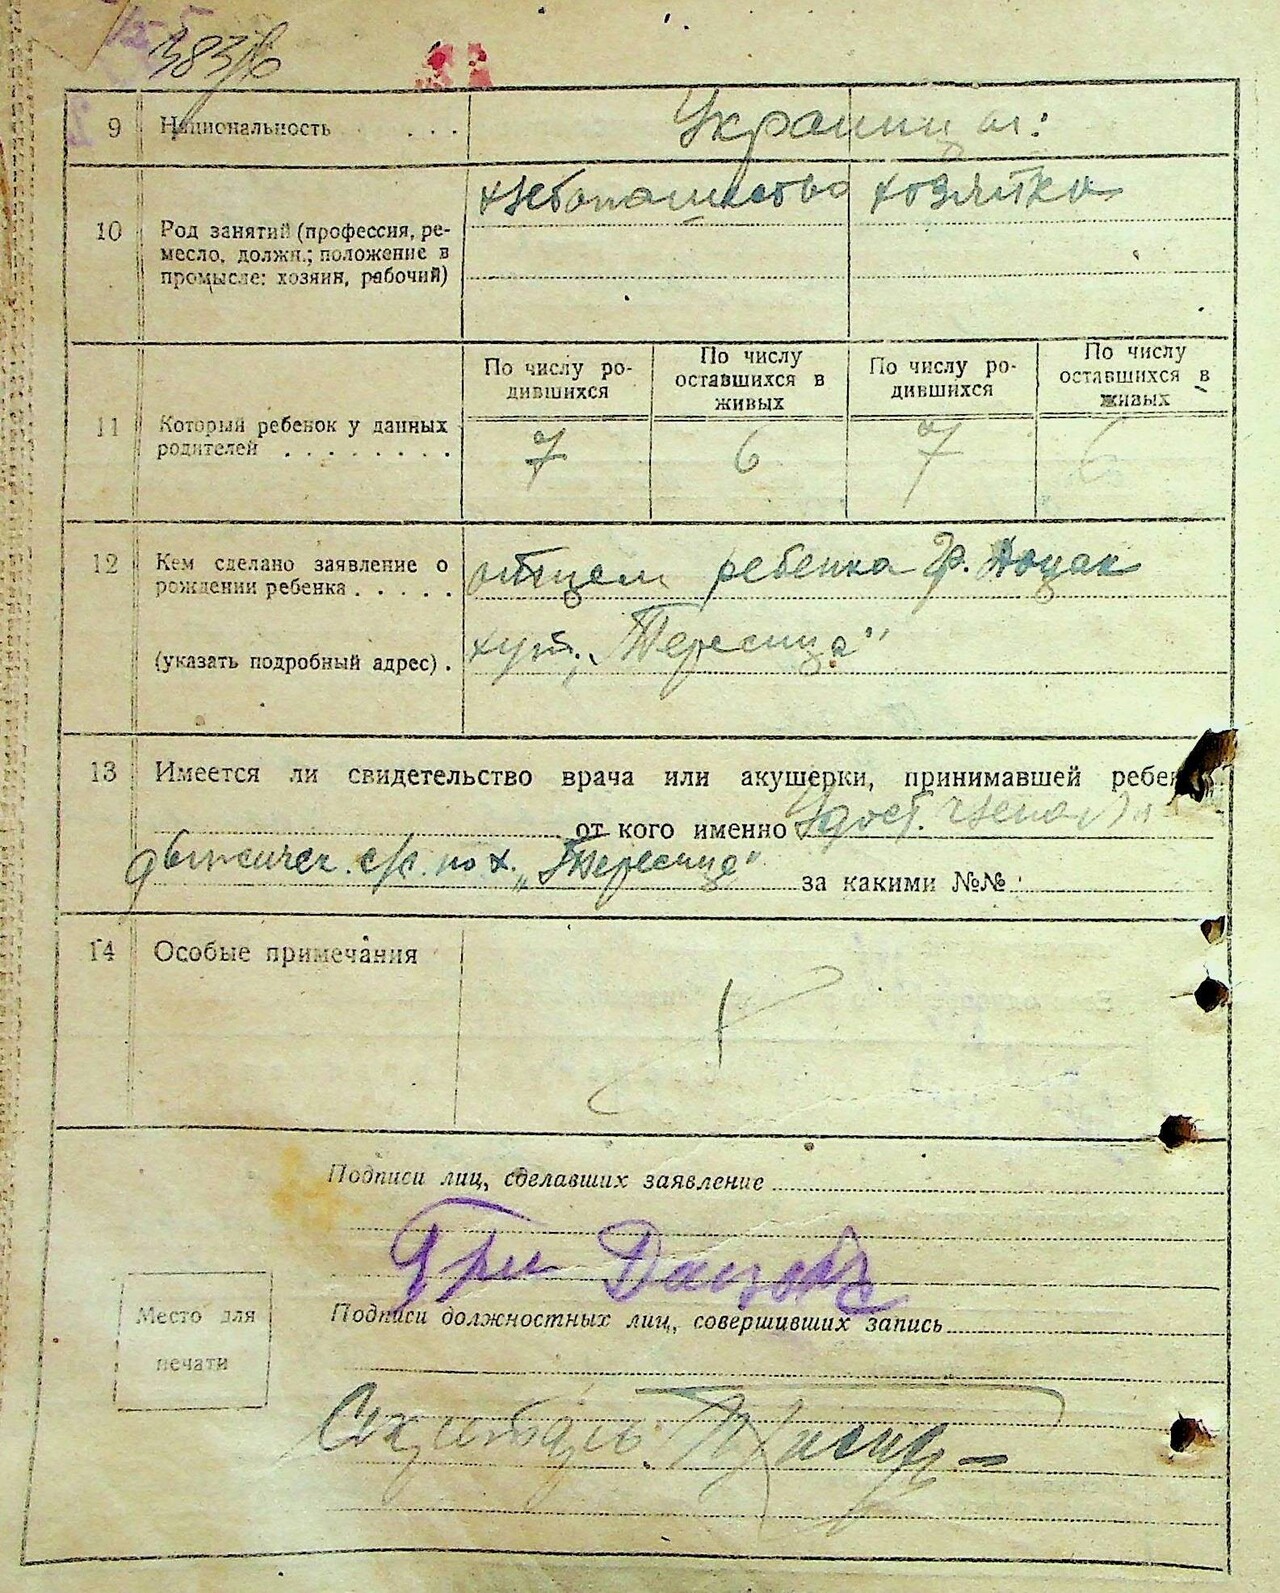 383/6
9 Национальность . . . Украинцы:
10 Род занятий (профессия, ре-
месло, должн.; положение в
промысле: хозяин, рабочий)
хлебопашество хозяйка
По числу ро-
дившихся
По числу
оставшихся в
живых
По числу ро-
дившихся
По числу
оставшихся в
живых
11 Который ребенок у данных
родителей . . . . . . . .
7 6 7 6
12 Кем сделано заявление о
рождении ребенка . . . . .
отцем ребенка Гр. Доцак
(указать подробный адрес) .
хут. „Тересица"
13 Имеется ли свидетельство врача или акушерки, принимавшей ребен
от кого именно Удост. члена
с/с. по х. „Тересице" за какими №№
14 Особые примечания
Подписи лиц, сделавших заявление
Гри Дацок
Подписи должностных лиц, совершивших запись
Место для
печати
Секретарь: